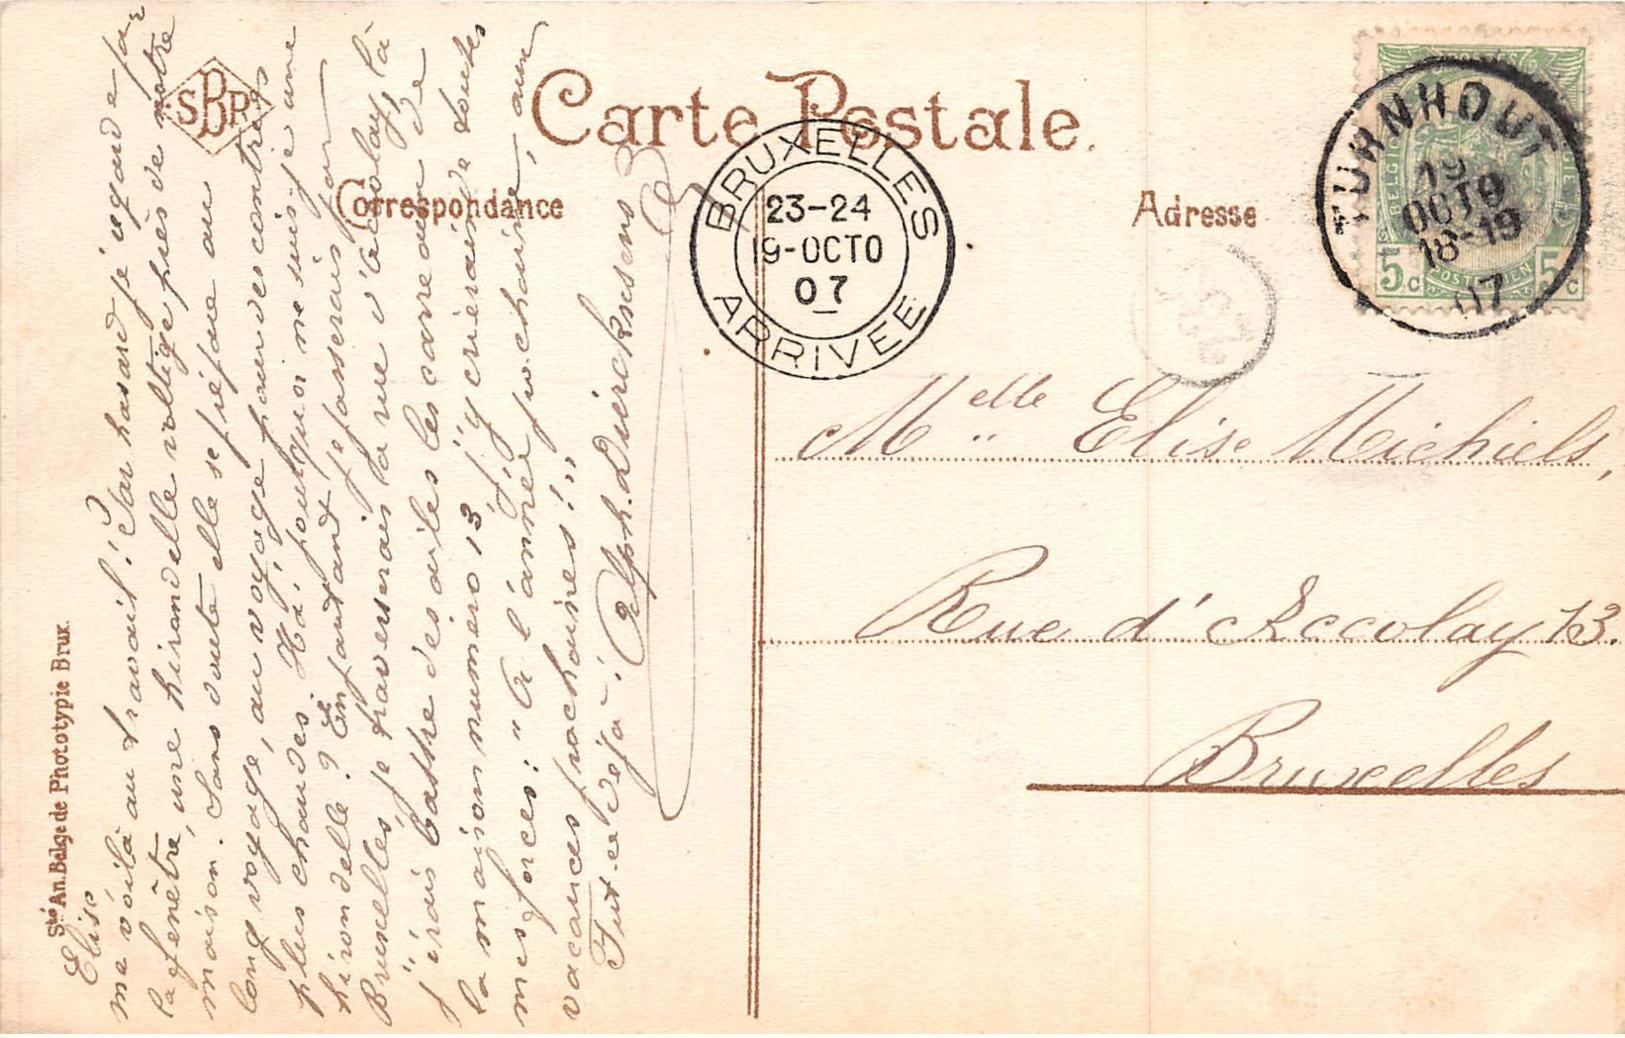 Carte Postale.
SBP
Correspondance
Adresse
BRUXELLES
23-24
19-OCTO
07
ARRIVEE
TURNHOUT
19
OCTO
18-19
07
5c 5c
Melle Elise Michiels,
Rue d'Accolay 13.
Bruxelles
Sté An. Belge de Phototypie Brux.
Elise
me voilà au travail! Par hasard je regarde par
la fenêtre, une hirondelle voltige près de notre
maison. Sans doute elle se prépare au
long voyage, au voyage pour des contrées
plus chaudes. Ha! pourquoi ne suis-je une
hirondelle? En partant je passerais par
Bruxelles, je traverserais la rue d'accolay, là
j'irais battre des ailes les carreaux de
la maison numéro 13, j'y crierais de toutes
mes forces: "A l'année prochaine, aux
vacances prochaines!"
Fut-ce déjà!
Alph. Dierckxsens